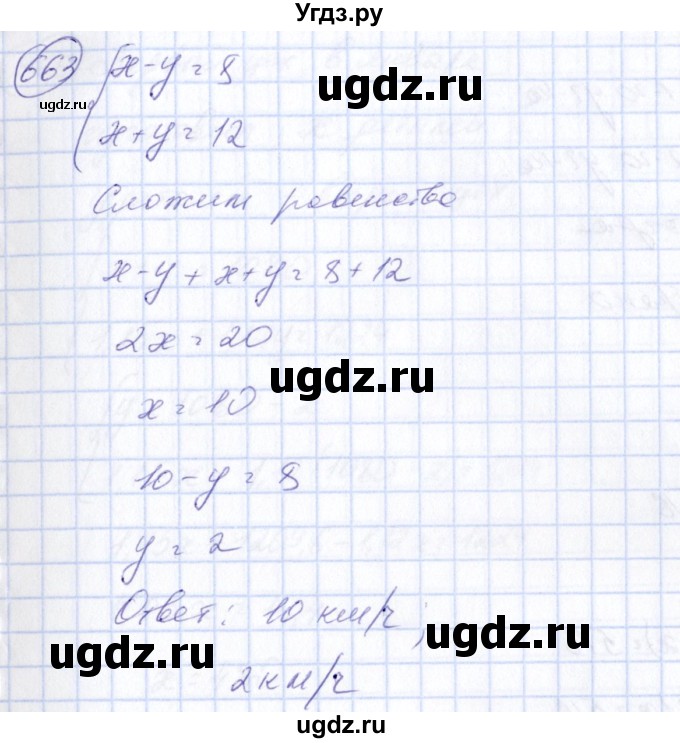 Угдз.ру
663 { х-у=8
ugdz.ru
ugdz.ru
х+у=12
Сложим равенства
х-у+х+у=8+12
2х=20
ugdz.ru
х=10
10-у=8
у=2
Ответ: 10 км/ч;
ugdz.ru
ugdz.ru
2 км/ч
ugdz.ru
ugdz.ru